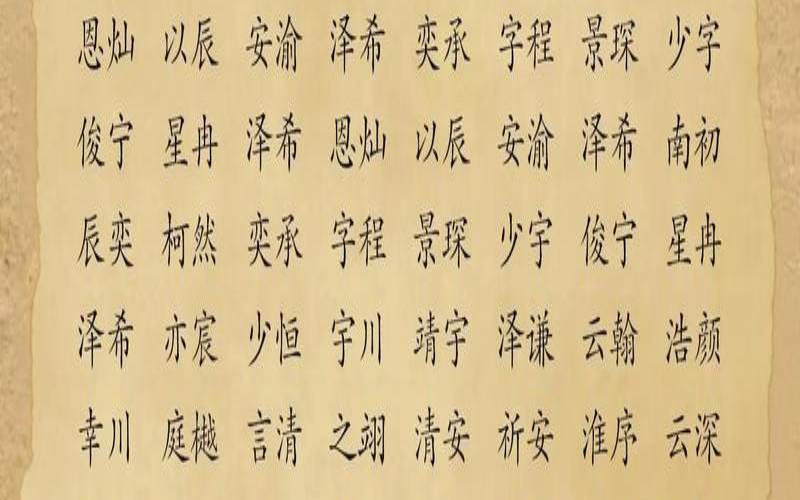 恩灿 以辰 安渝 泽希 奕承 字程 景琛 少字
俊宁 星冉 泽希 恩灿 以辰 安渝 泽希 南初
辰奕 柯然 奕承 字程 景琛 少宇 俊宁 星冉
泽希 亦宸 少恒 宇川 靖宇 泽谦 云翰 浩颜
幸川 庭樾 言清 之翊 清安 祈安 淮序 云深